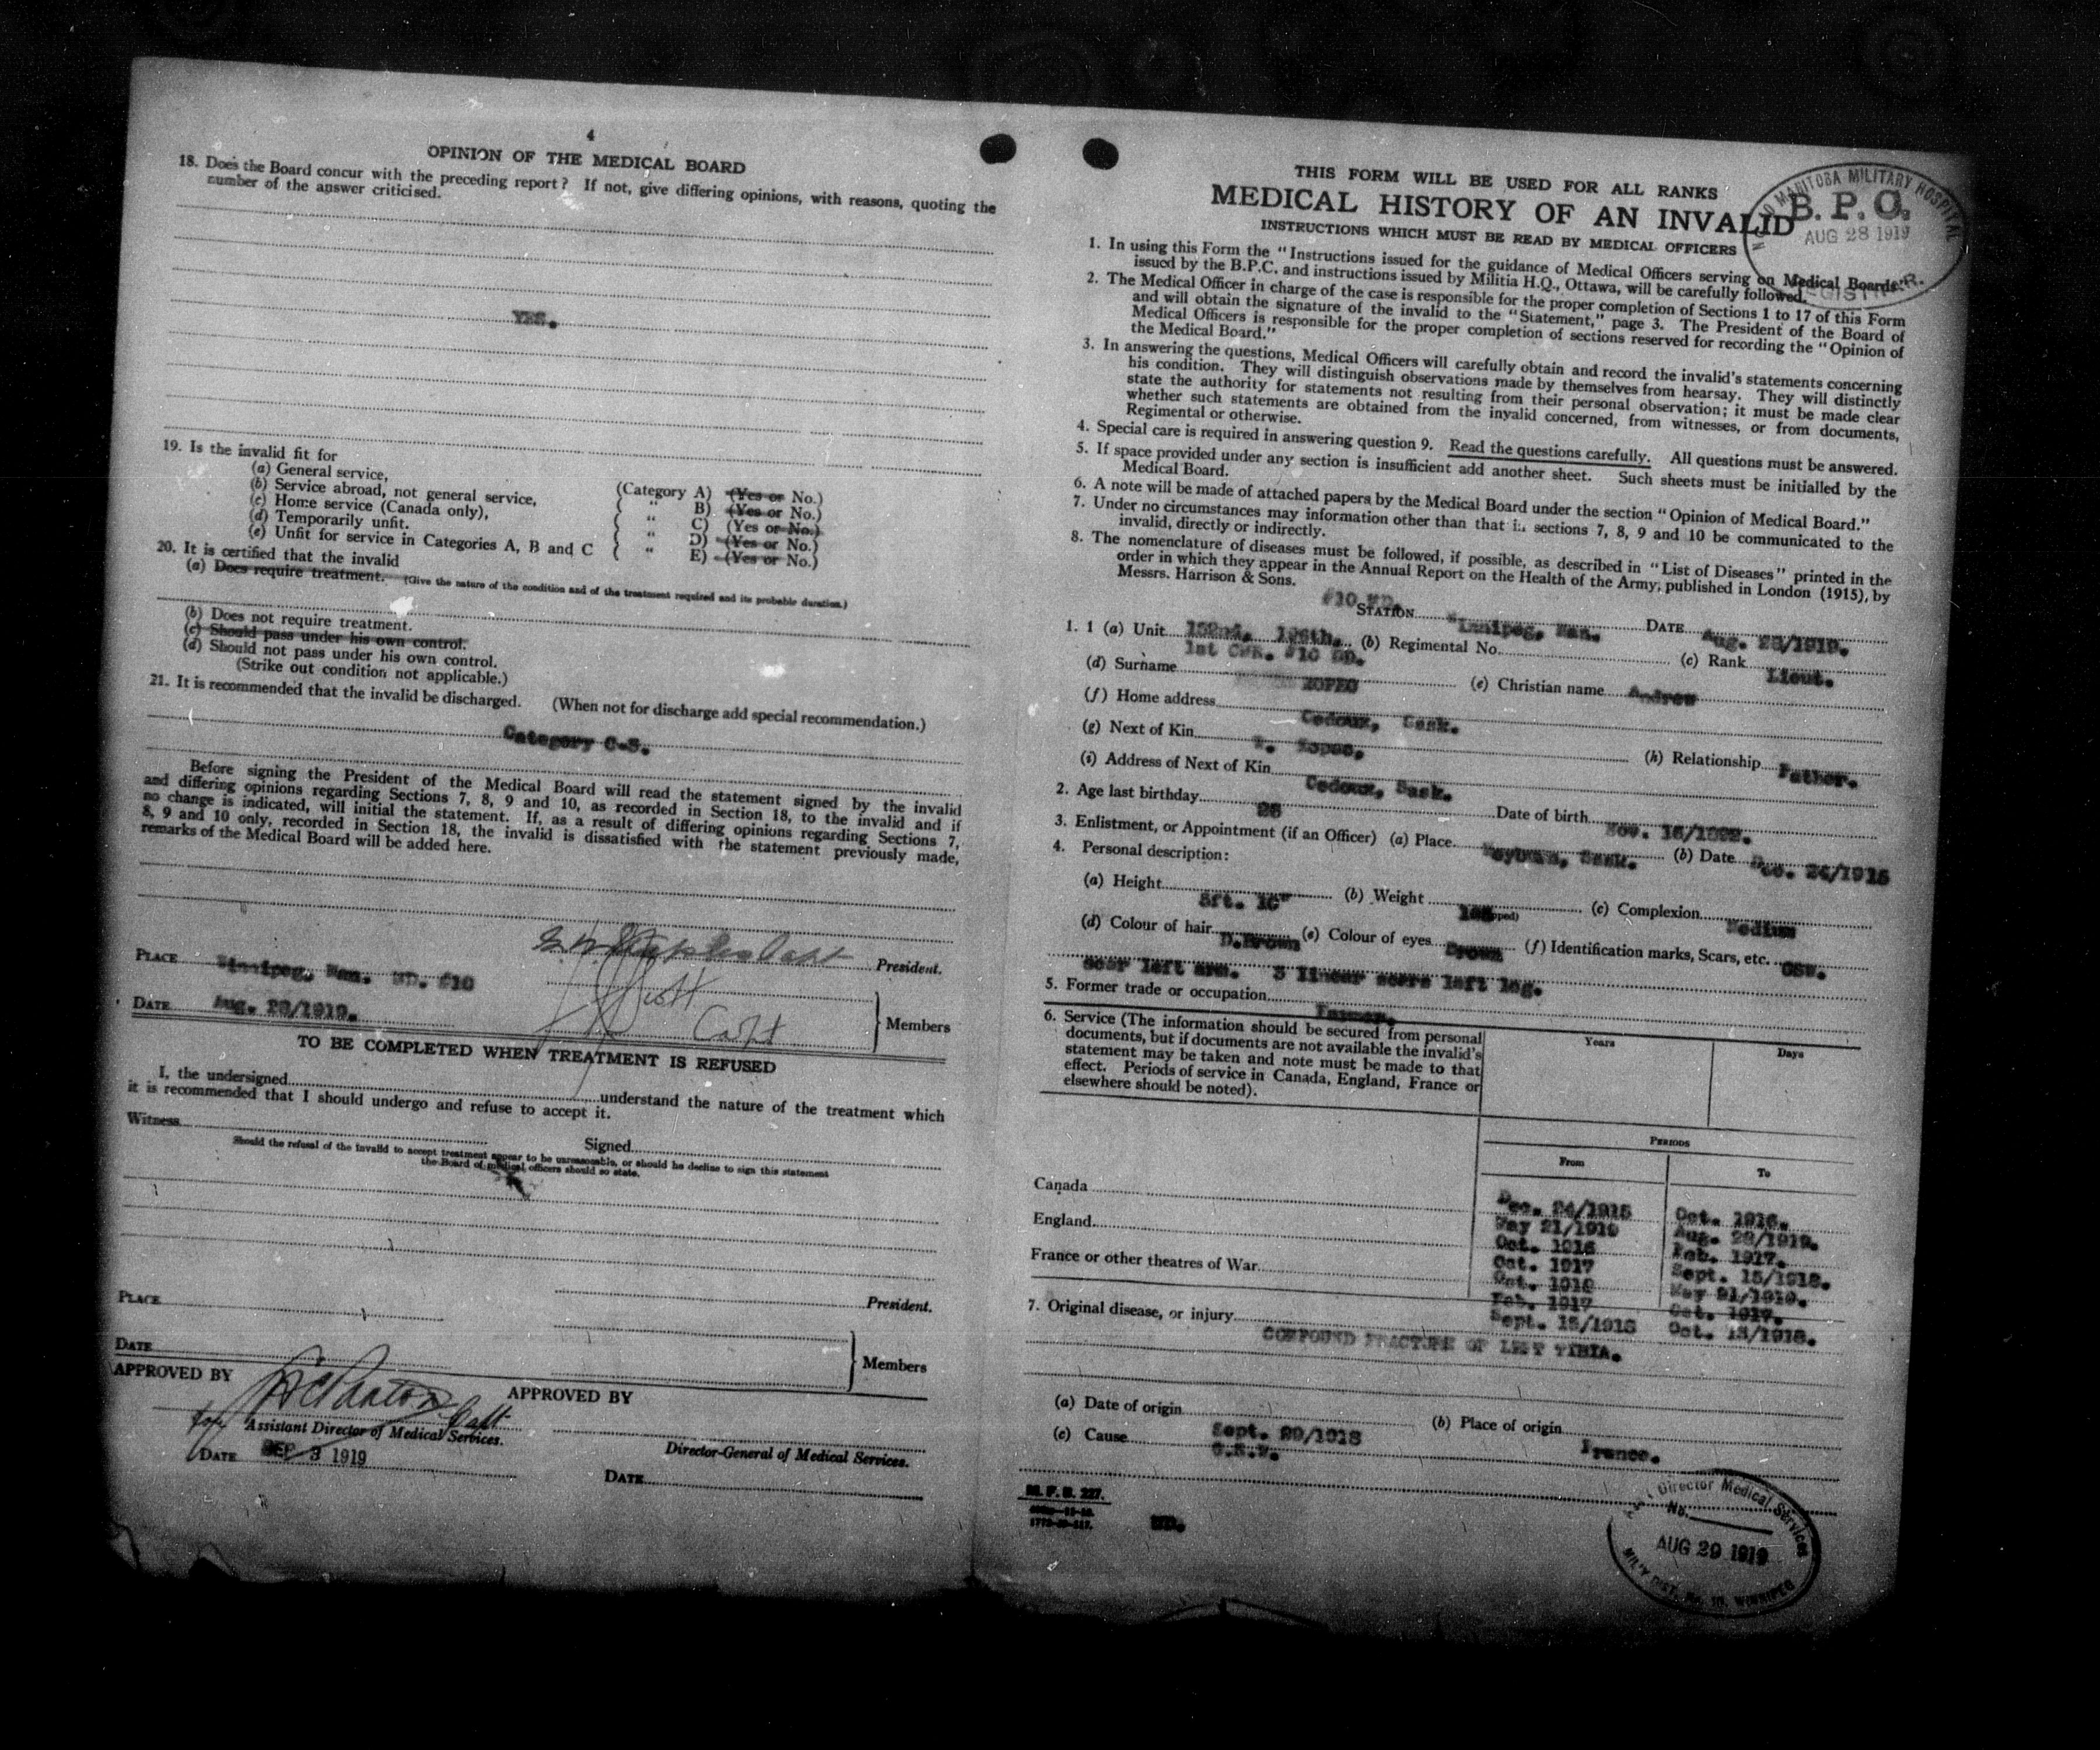 4
OPINION OF THE MEDICAL BOARD
18. Does the Board concur with the preceding report? If not, give differing opinions, with reasons, quoting the
number of the answer criticised.
YES.
19. Is the invalid fit for
(a) General service, (Category A) (Yes or No.)
(b) Service abroad, not general service, ( " B) (Yes or No.)
(c) Home service (Canada only), ( " C) (Yes or No.)
(d) Temporarily unfit. ( " D) (Yes or No.)
(e) Unfit for service in Categories A, B and C ( " E) (Yes or No.)
20. It is certified that the invalid
(a) Does require treatment. (Give the nature of the condition and of the treatment required and its probable duration.)
(b) Does not require treatment.
(c) Should pass under his own control.
(d) Should not pass under his own control.
(Strike out condition not applicable.)
21. It is recommended that the invalid be discharged. (When not for discharge add special recommendation.)
Category C-3.
Before signing the President of the Medical Board will read the statement signed by the invalid
and differing opinions regarding Sections 7, 8, 9 and 10, as recorded in Section 18, to the invalid and if
no change is indicated, will initial the statement. If, as a result of differing opinions regarding Sections 7,
8, 9 and 10 only, recorded in Section 18, the invalid is dissatisfied with the statement previously made,
remarks of the Medical Board will be added here.
Capt President.
PLACE Winnipeg, Man. MD. #10
Capt
DATE Aug. 28/1919. Members
TO BE COMPLETED WHEN TREATMENT IS REFUSED
I, the undersigned understand the nature of the treatment which
it is recommended that I should undergo and refuse to accept it.
Witness Signed
Should the refusal of the invalid to accept treatment appear to be unreasonable, or should he decline to sign this statement
the Board of medical officers should so state.
President.
PLACE
DATE Members
APPROVED BY APPROVED BY
for Capt
Assistant Director of Medical Services. Director-General of Medical Services.
DATE SEP 3 1919 DATE
THIS FORM WILL BE USED FOR ALL RANKS
MEDICAL HISTORY OF AN INVALID
INSTRUCTIONS WHICH MUST BE READ BY MEDICAL OFFICERS
MANITOBA MILITARY HOSPITAL
B.P.O.
AUG 28 1919
REGISTRAR.
1. In using this Form the "Instructions issued for the guidance of Medical Officers serving on Medical Boards"
issued by the B.P.C. and instructions issued by Militia H.Q., Ottawa, will be carefully followed.
2. The Medical Officer in charge of the case is responsible for the proper completion of Sections 1 to 17 of this Form
and will obtain the signature of the invalid to the "Statement," page 3. The President of the Board of
Medical Officers is responsible for the proper completion of sections reserved for recording the "Opinion of
the Medical Board."
3. In answering the questions, Medical Officers will carefully obtain and record the invalid's statements concerning
his condition. They will distinguish observations made by themselves from hearsay. They will distinctly
state the authority for statements not resulting from their personal observation; it must be made clear
whether such statements are obtained from the invalid concerned, from witnesses, or from documents,
Regimental or otherwise.
4. Special care is required in answering question 9. Read the questions carefully. All questions must be answered.
5. If space provided under any section is insufficient add another sheet. Such sheets must be initialled by the
Medical Board.
6. A note will be made of attached papers by the Medical Board under the section "Opinion of Medical Board."
7. Under no circumstances may information other than that in sections 7, 8, 9 and 10 be communicated to the
invalid, directly or indirectly.
8. The nomenclature of diseases must be followed, if possible, as described in "List of Diseases" printed in the
order in which they appear in the Annual Report on the Health of the Army, published in London (1915), by
Messrs. Harrison & Sons.
#10 MD.
STATION Winnipeg, Man. DATE Aug. 28/1919.
1. 1 (a) Unit 152nd, (b) Regimental No. (c) Rank Lieut.
1st #10 MD.
(d) Surname KOPEC (e) Christian name Andrew
(f) Home address Cedoux, Sask.
(g) Next of Kin Kopec, (h) Relationship Father.
(i) Address of Next of Kin Cedoux, Sask.
2. Age last birthday 26 Date of birth Nov. 16/1892.
3. Enlistment, or Appointment (if an Officer) (a) Place Weyburn, Sask. (b) Date Dec. 24/1915
4. Personal description:
(a) Height 5ft. 10" (b) Weight (c) Complexion Medium
(d) Colour of hair D.Brown (e) Colour of eyes Brown (f) Identification marks, Scars, etc. GSW.
scar left arm. 3 linear scars left leg.
5. Former trade or occupation Farmer.
6. Service (The information should be secured from personal
documents, but if documents are not available the invalid's
statement may be taken and note must be made to that
effect. Periods of service in Canada, England, France or
elsewhere should be noted).
Years Days
PERIODS
From To
Canada Dec. 24/1915 Oct. 1916.
May 21/1919 Aug. 28/1919.
England Oct. 1916 Feb. 1917.
Oct. 1917 Sept. 15/1918.
Oct. 1918 May 21/1919.
France or other theatres of War Feb. 1917 Oct. 1917.
Sept. 15/1918 Oct. 1918.
7. Original disease, or injury
COMPOUND FRACTURE OF LEFT TIBIA.
(a) Date of origin Sept. 29/1918 (b) Place of origin France.
(c) Cause G.S.W.
M. F. B. 227.
Director Medical Services
No.
AUG 29 1919
MIL'Y DIST. No. 10, WINNIPEG